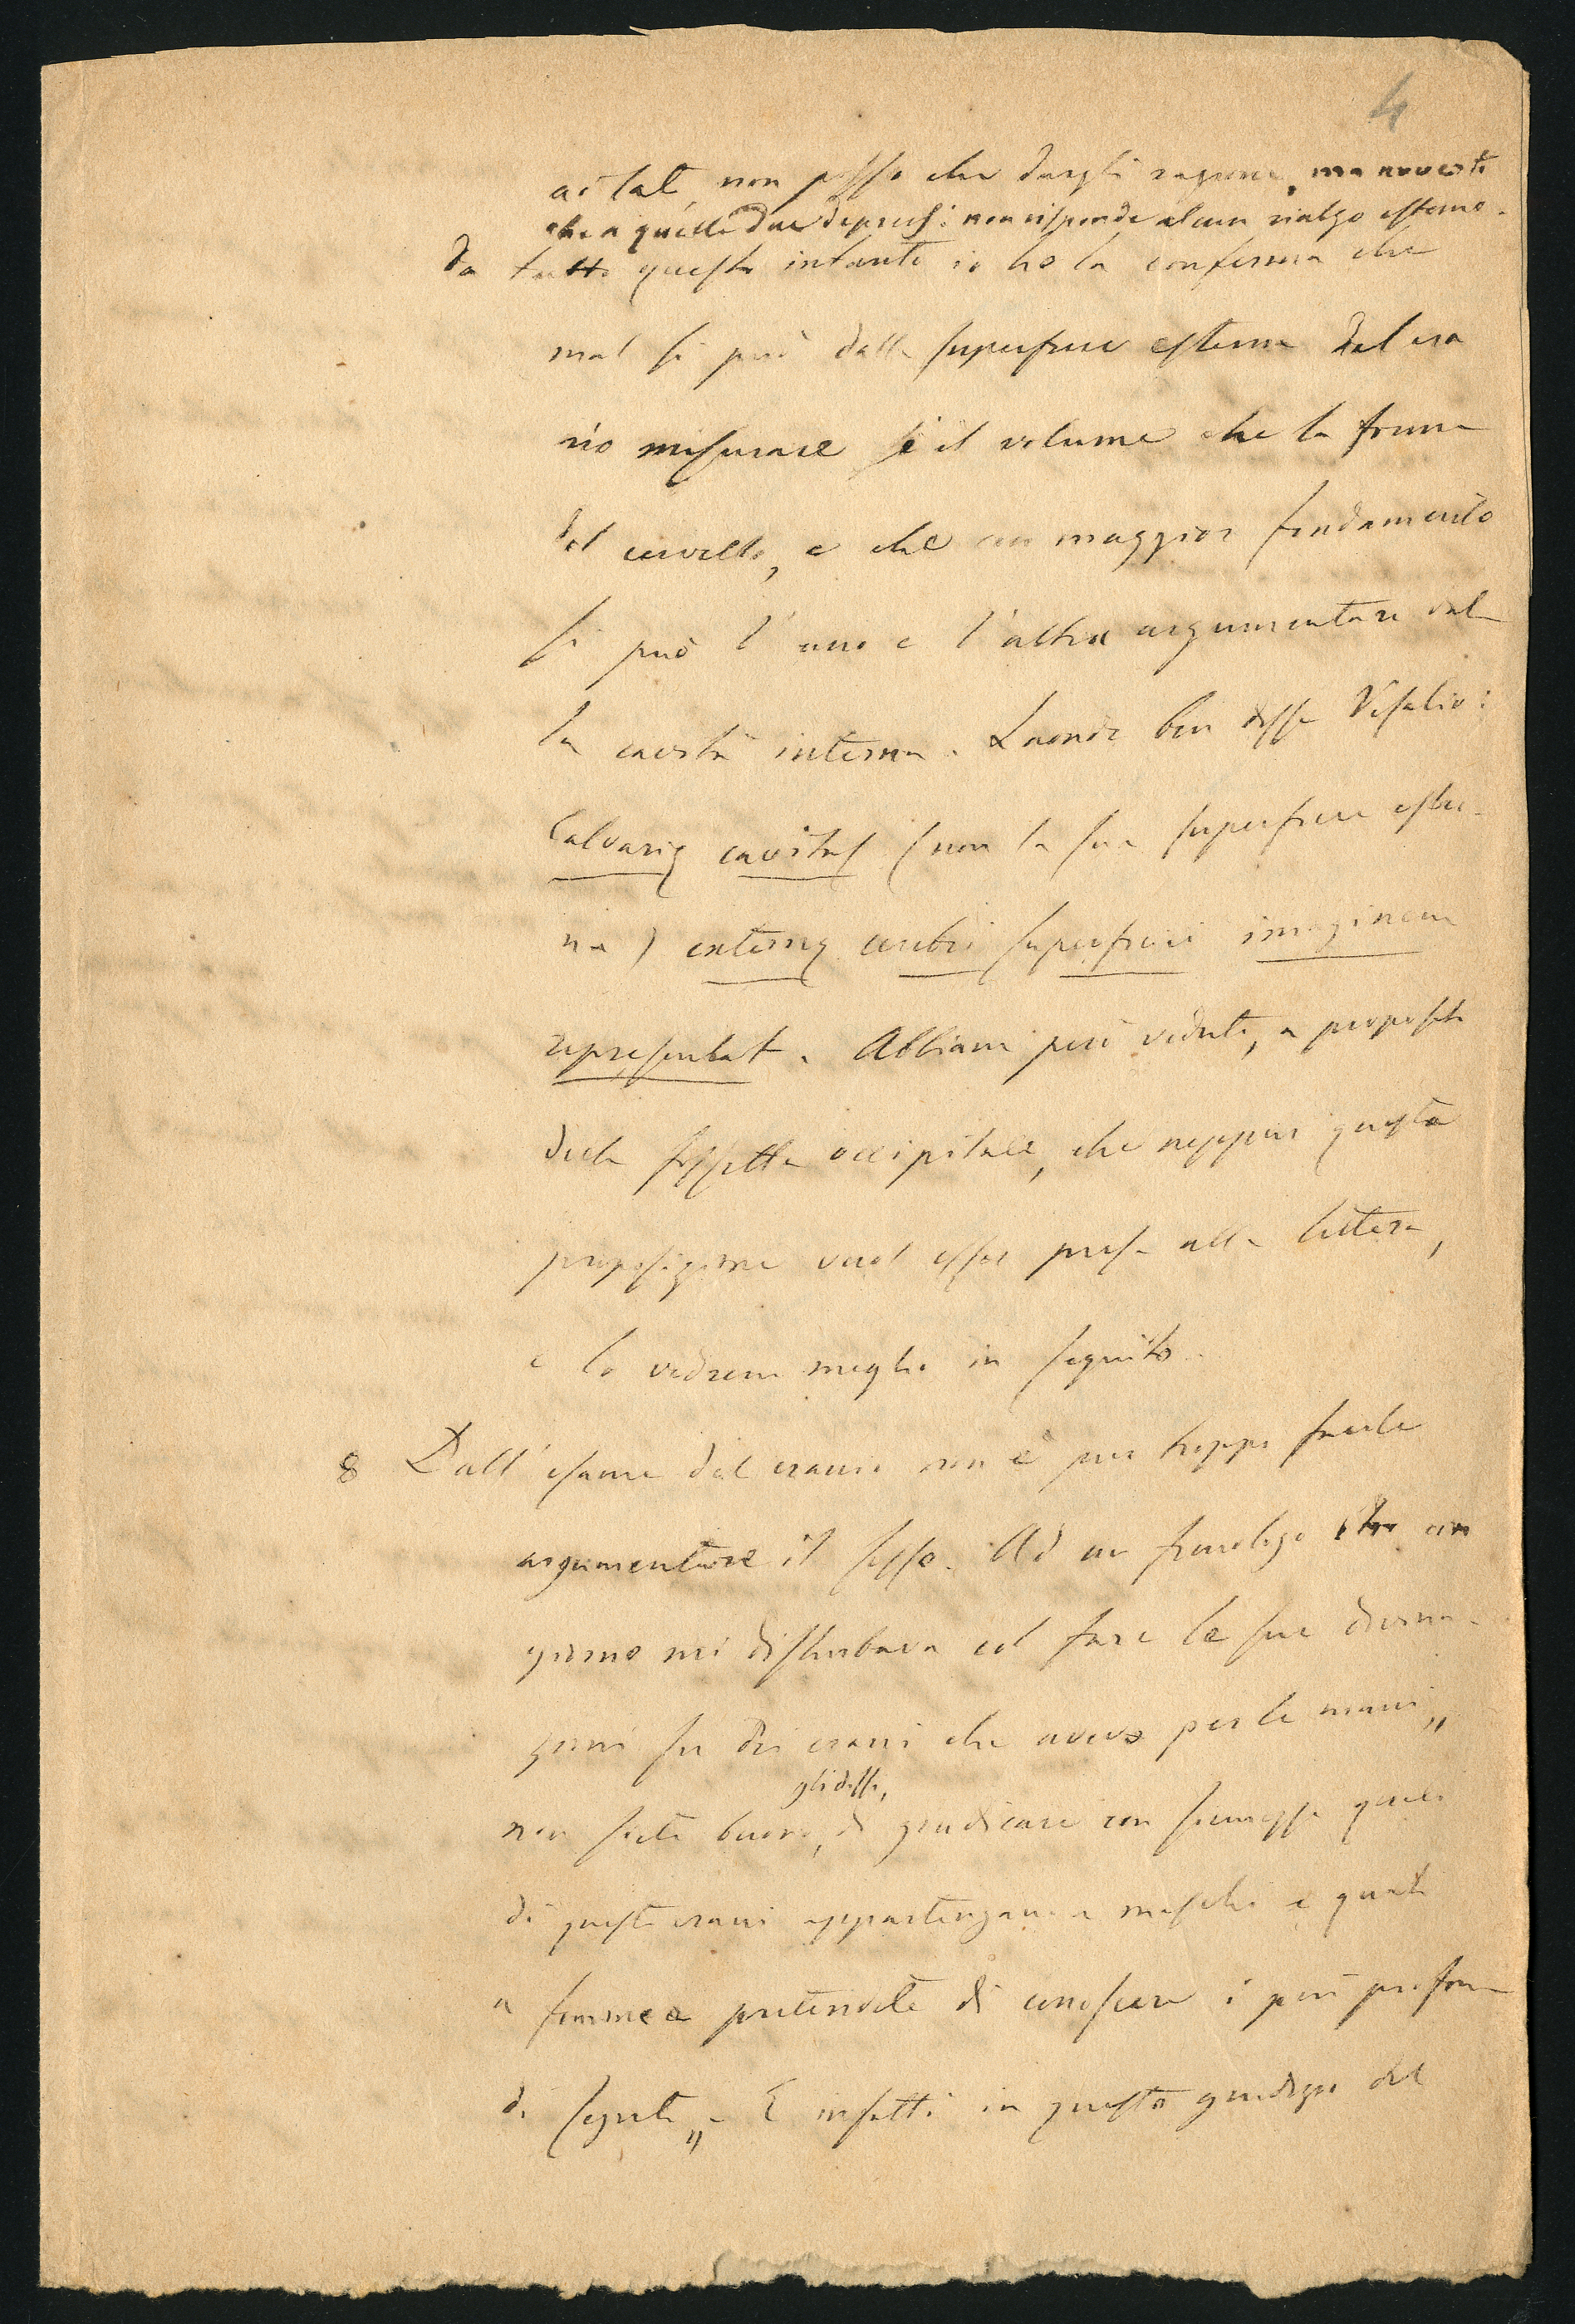 4
ai lati, non posso che dargli ragione, ma avverto
che a quelle due depressi: non risponde alcun rialzo esterno.
da tutto questo intanto io ho la conferma che
mal si può dalla superficie esterna del cra
nio misurare sì il volume che la forma
del cervello, e che con maggior fondamento
si può l'uno e l'altra argumentare dal
la cavità interna. Laonde ben disse Vesalio:
Calvarię cavitas (non la sua superficie ester-
na) externę cerebri superficiei imaginem
repręsentat. Abbiam però veduto, a proposito
della fossetta occipitale, che neppur questa
proposizione vuol esser presa alla lettera,
e lo vedrem meglio in seguito.
8 Dall'esame del cranio non è pur troppo facile
argumentare il sesso. Ad un frenologo che un
giorno mi disturbava col fare le sue divina-
zioni su dei crani che avevo per le mani „
non siete buono, gli dissi, di giudicare con sicurezza quali
di questi crani appartengano a maschi e quali
a femmine e pretendete di conoscere i più profon
di segreti „. E infatti in questo giudizio del